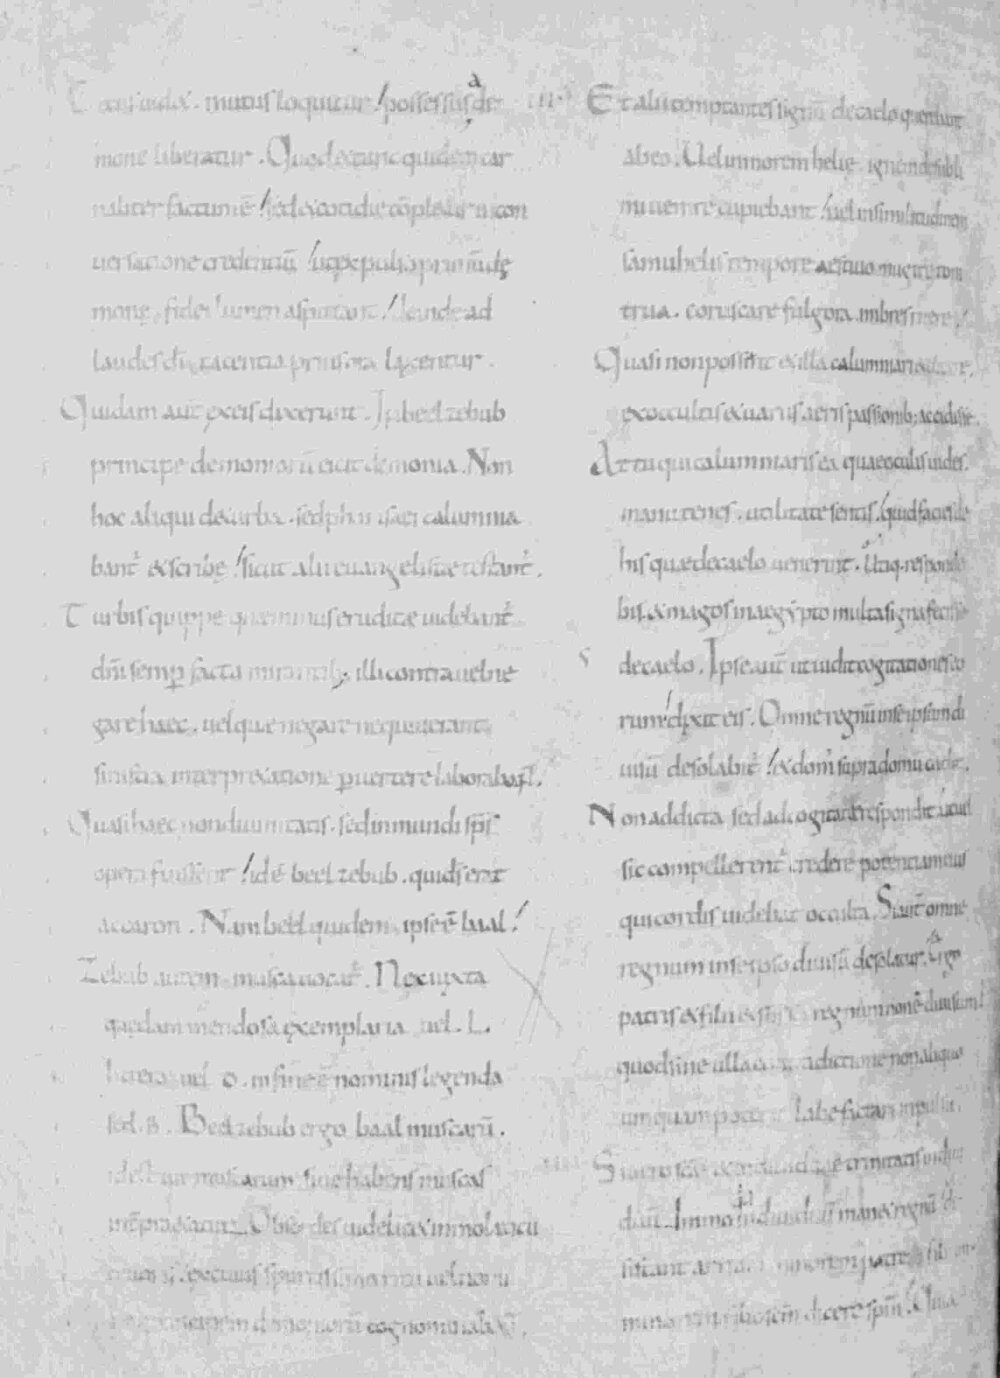 Cecus uidet. mutus loquitur possessus a de
mone liberatur. Quod et tunc quidem car
naliter factum ē sed et cotidie cōpletur in con
uersatione credentiū ut expepulso primū de
mone fidei lumen aspitiant deinde ad
laudes dī tacentia prius ora laxentur.
Quidam aut ex eis dixerunt. In beelzebub
principe demoniorū eicit demonia. Non
hoc aliqui de turba. sed pharisaei calumnia
bant et scribe sicut alii euangelistae testant.
Turbis quippe quae minus eruditae uidebant
dni semper facta mirantib; illi contra uel ne
gare haec. uel que negare nequiuerant
sinistra interpretatione puertere laborabant.
Quasi haec non diuinitatis. sed inmundi sps
opera fuissent idē beelzebub. qui ds erat
accaron. Nam beel quidem ipse ē baal
Zebub autem musca uocat. Nec iuxta
quaedam mendosa exemplaria uel. L.
littera uel d. in fine ē nominis legenda
sed. b. Beelzebub ergo baal muscarū.
idest uir muscarum siue habens muscas
intpraetatur. Ob sordes uidelicet immolaticii
cruoris ex cuius spurcissimo ritu uel nomi
ne principem demoniorū cognominabant.
Et alii temptantes signū de caelo querebant
ab eo. Uel in morem helie ignem de subli
mi uenire cupiebant uel in similitudinem
samuhelis tempore aestiuo mugire toni
trua. coruscare fulgora. imbres ruere
Quasi non possint et illa calumniari et dicere.
ex occultis et uariis aeris passionib; accidisse.
At tu qui calumniaris ea quae oculis uides.
manu tenes. utilitate sentis. quid facies de
his quae de caelo uenerint. Utiq. responde
bis. et magos in aegypto multa signa fecisse
de caelo. Ipse aut ut uidit cogitationes eo
rum dixit eis. Omne regnū in se ipsum di
uisū desolabit et dom supra domū cadet.
Non ad dicta sed ad cogitata respondit ut uel
sic compellerent credere potentiam eius
qui cordis uidebat occulta. Si aut omne
regnum in se ipso diuisū desolatur. Ergo
patris et filii et sps sci regnum non ē diuisum
quod sine ulla contradictione non aliquo
umquam potest labefactari inpulsu.
Si uero scē et indiuiduae trinitatis indiui
duū. Immo qa indiuiduū manet regnū de
sistant arriani minorem patre filiū
minorem filio spm dicere spm. Quia